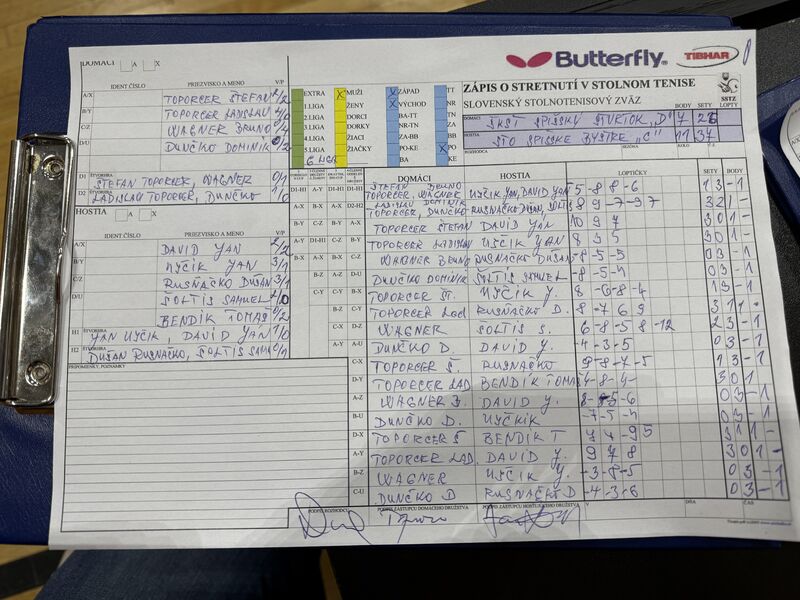 DOMÁCI A X
IDENT.ČÍSLO PRIEZVISKO A MENO V/P
A/X TOPORCER ŠTEFAN 2/2
B/Y TOPORCER LADISLAV 4/0
C/Z WAGNER BRUNO 0/4
D/U DUNČKO DOMINIK 0/4
D1 ŠTVORHRA ŠTEFAN TOPORCER, WAGNER 0/1
D2 LADISLAV TOPORCER, DUNČKO 1/0
HOSTIA A X
IDENT.ČÍSLO PRIEZVISKO A MENO V/P
A/X DAVID YAN 2/2
B/Y UYČÍK YAN 3/1
C/Z RUSNAČKO DUŠAN 3/1
D/U ŠOLTIS SAMUEL 2/0
BENDÍK TOMAS 0/2
H1 ŠTVORHRA YAN UYČIK, DAVID YAN 1/0
H2 ŠTVORHRA DUŠAN RUSNAČKO, ŠOLTIS SAM 0/1
PRIPOMIENKY, POZNÁMKY
Butterfly
TIBHAR
EXTRA X MUŽI X ZÁPAD TT
1.LIGA ŽENY X VÝCHOD NR
2.LIGA DORCI BA-TT TN
3.LIGA DORKY NR-TN ZA
4.LIGA ŽIACI ZA-BB BB
5.LIGA ŽIAČKY PO-KE X PO
6 LIGA BA KE
ZÁPIS O STRETNUTÍ V STOLNOM TENISE
SLOVENSKÝ STOLNOTENISOVÝ ZVÄZ SSTZ
BODY SETY LOPTY
DOMÁCI ŠKST SPIŠSKÝ ŠTVRTOK "D" 7 26
HOSTIA STO SPIŠSKE BYSTRE "C" 11 37
ROZHODCA SEZÓNA KOLO Č.Z.
DOMÁCI HOSTIA LOPTIČKY SETY BODY
D1-H1 ŠTEFAN BRUNO TOPORCER, WAGNER UYČIK YAN, DAVID YAN -5 -8 8 -6 1 3 - 1
LADISLAV DOMINIK TOPORCER, DUNČKO 8 -9 -7 -9 7 3 2 1 -
TOPORCER ŠTEFAN DAVID YAN 10 9 7 3 0 1 -
TOPORCER LADISLAV UYČIK YAN 8 5 5 3 0 1 -
WAGNER BRUNO RUSNAČKO DUŠAN -8 -5 -5 0 3 - 1
DUNČKO DOMINIK ŠOLTIS SAMUEL -8 -5 -4 0 3 - 1
TOPORCER ŠT. UYČIK Y. 8 -6 -8 -4 1 3 - 1
TOPORCER Lad RUSNAČKO D. 8 -7 6 9 3 1 1 -
WAGNER SOLTIS S. 6 -8 -5 8 -12 2 3 - 1
DUNČKO D. DAVID Y. -4 -3 -5 0 3 - 1
TOPORCER Š. RUSNAČKO 9 -8 -7 -5 1 3 - 1
TOPORCER LAD BENDÍK TOMAS 3 0 1
WAGNER B. DAVID Y. 0 3 - 1
DUNČKO D. UYČKIK -7 -5 -4 0 3 - 1
TOPORCER Š BENDIK T 9 4 -9 5 3 1 1 -
TOPORCER LAD. DAVID Y. 9 7 8 3 0 1 -
WAGNER UYČIK Y. -3 -8 -5 0 3 - 1
DUNČKO D RUSNAČKO D -4 -3 -6 0 3 - 1
PODPIS ROZHODCU PODPIS ZÁSTUPCU DOMÁCEHO DRUŽSTVA PODPIS ZÁSTUPCU HOSTUJÚCEHO DRUŽSTVA V DŇA ČAS